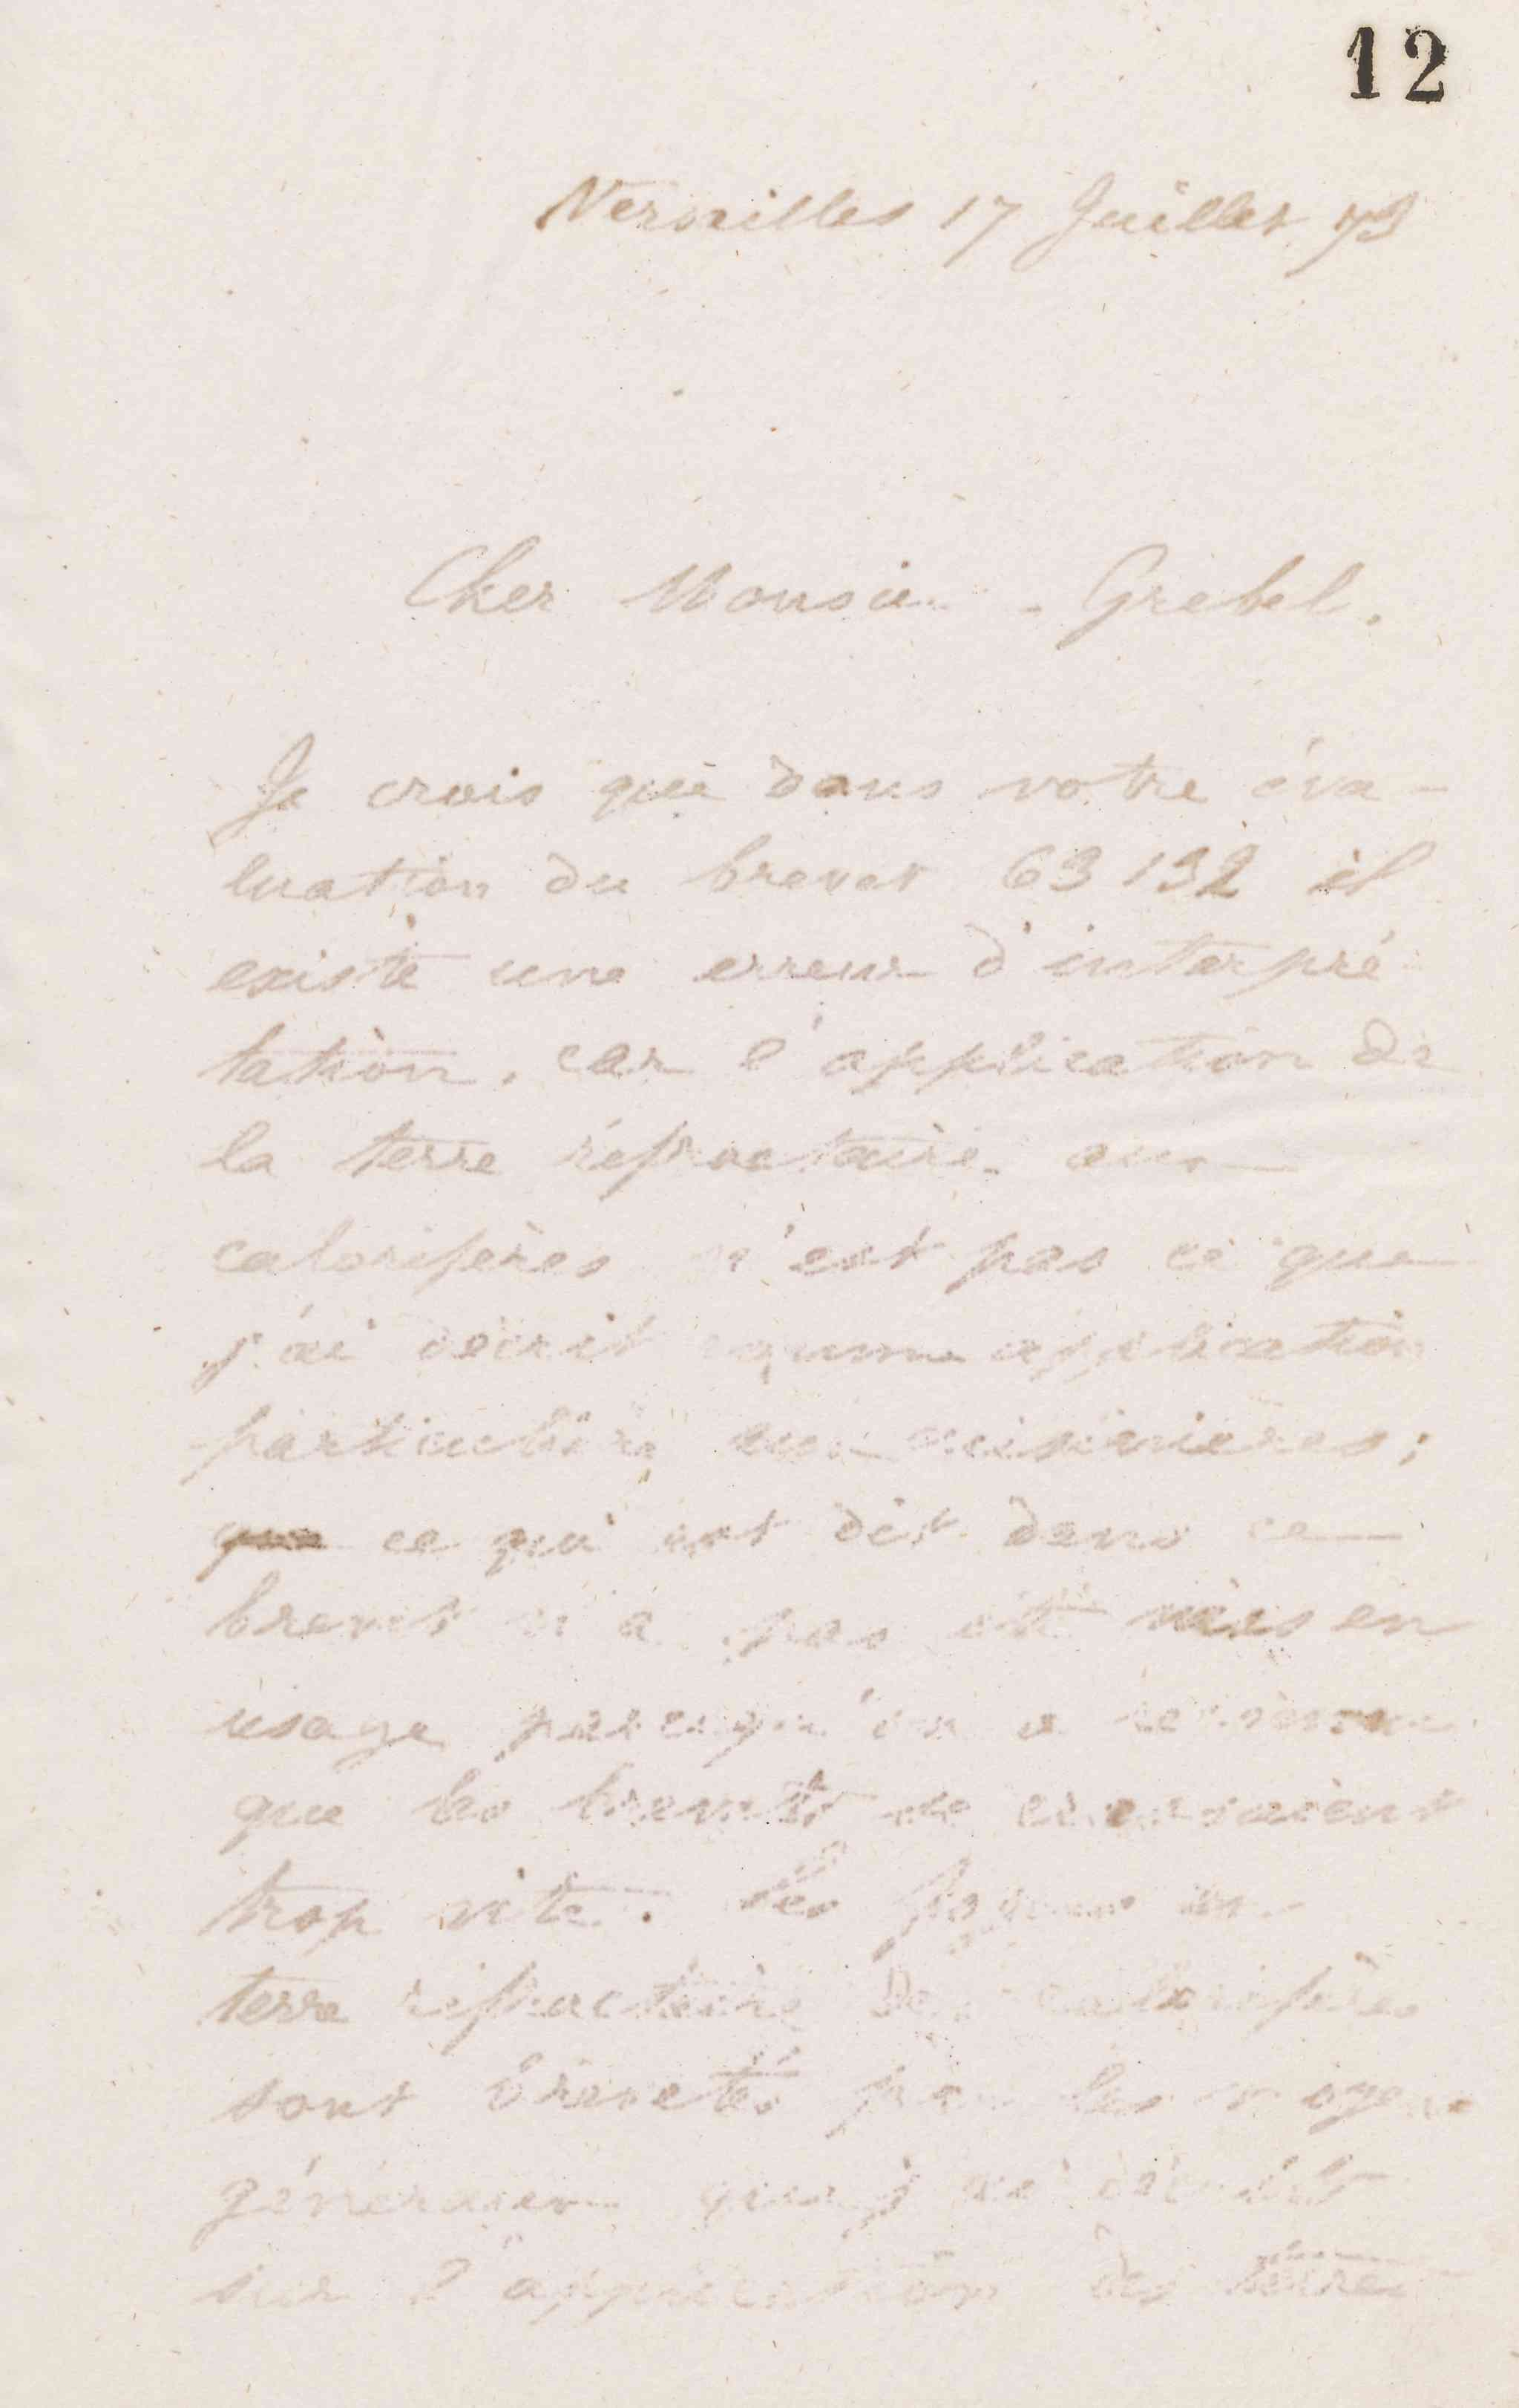 12
Versailles 17 Juillet 73
Cher Monsieur Grebel.
Je crois que dans votre éva-
luation du brevet 63132 il
existe une erreur d'interpré
tation, car l'application de
la terre réfractaire aux
calorifères n'est pas ce que
j'ai décrit comme application
particulière aux cuisinières;
que ce qui est dit dans ce
brevet n'a pas été mis en
usage parcequ'on a reconnu
que les brevets se
trop vite. Les foyers en
terre réfractaire des calorifères
sont brevetés par les moyens
généraux que j'ai décrit
sur l'application des terres